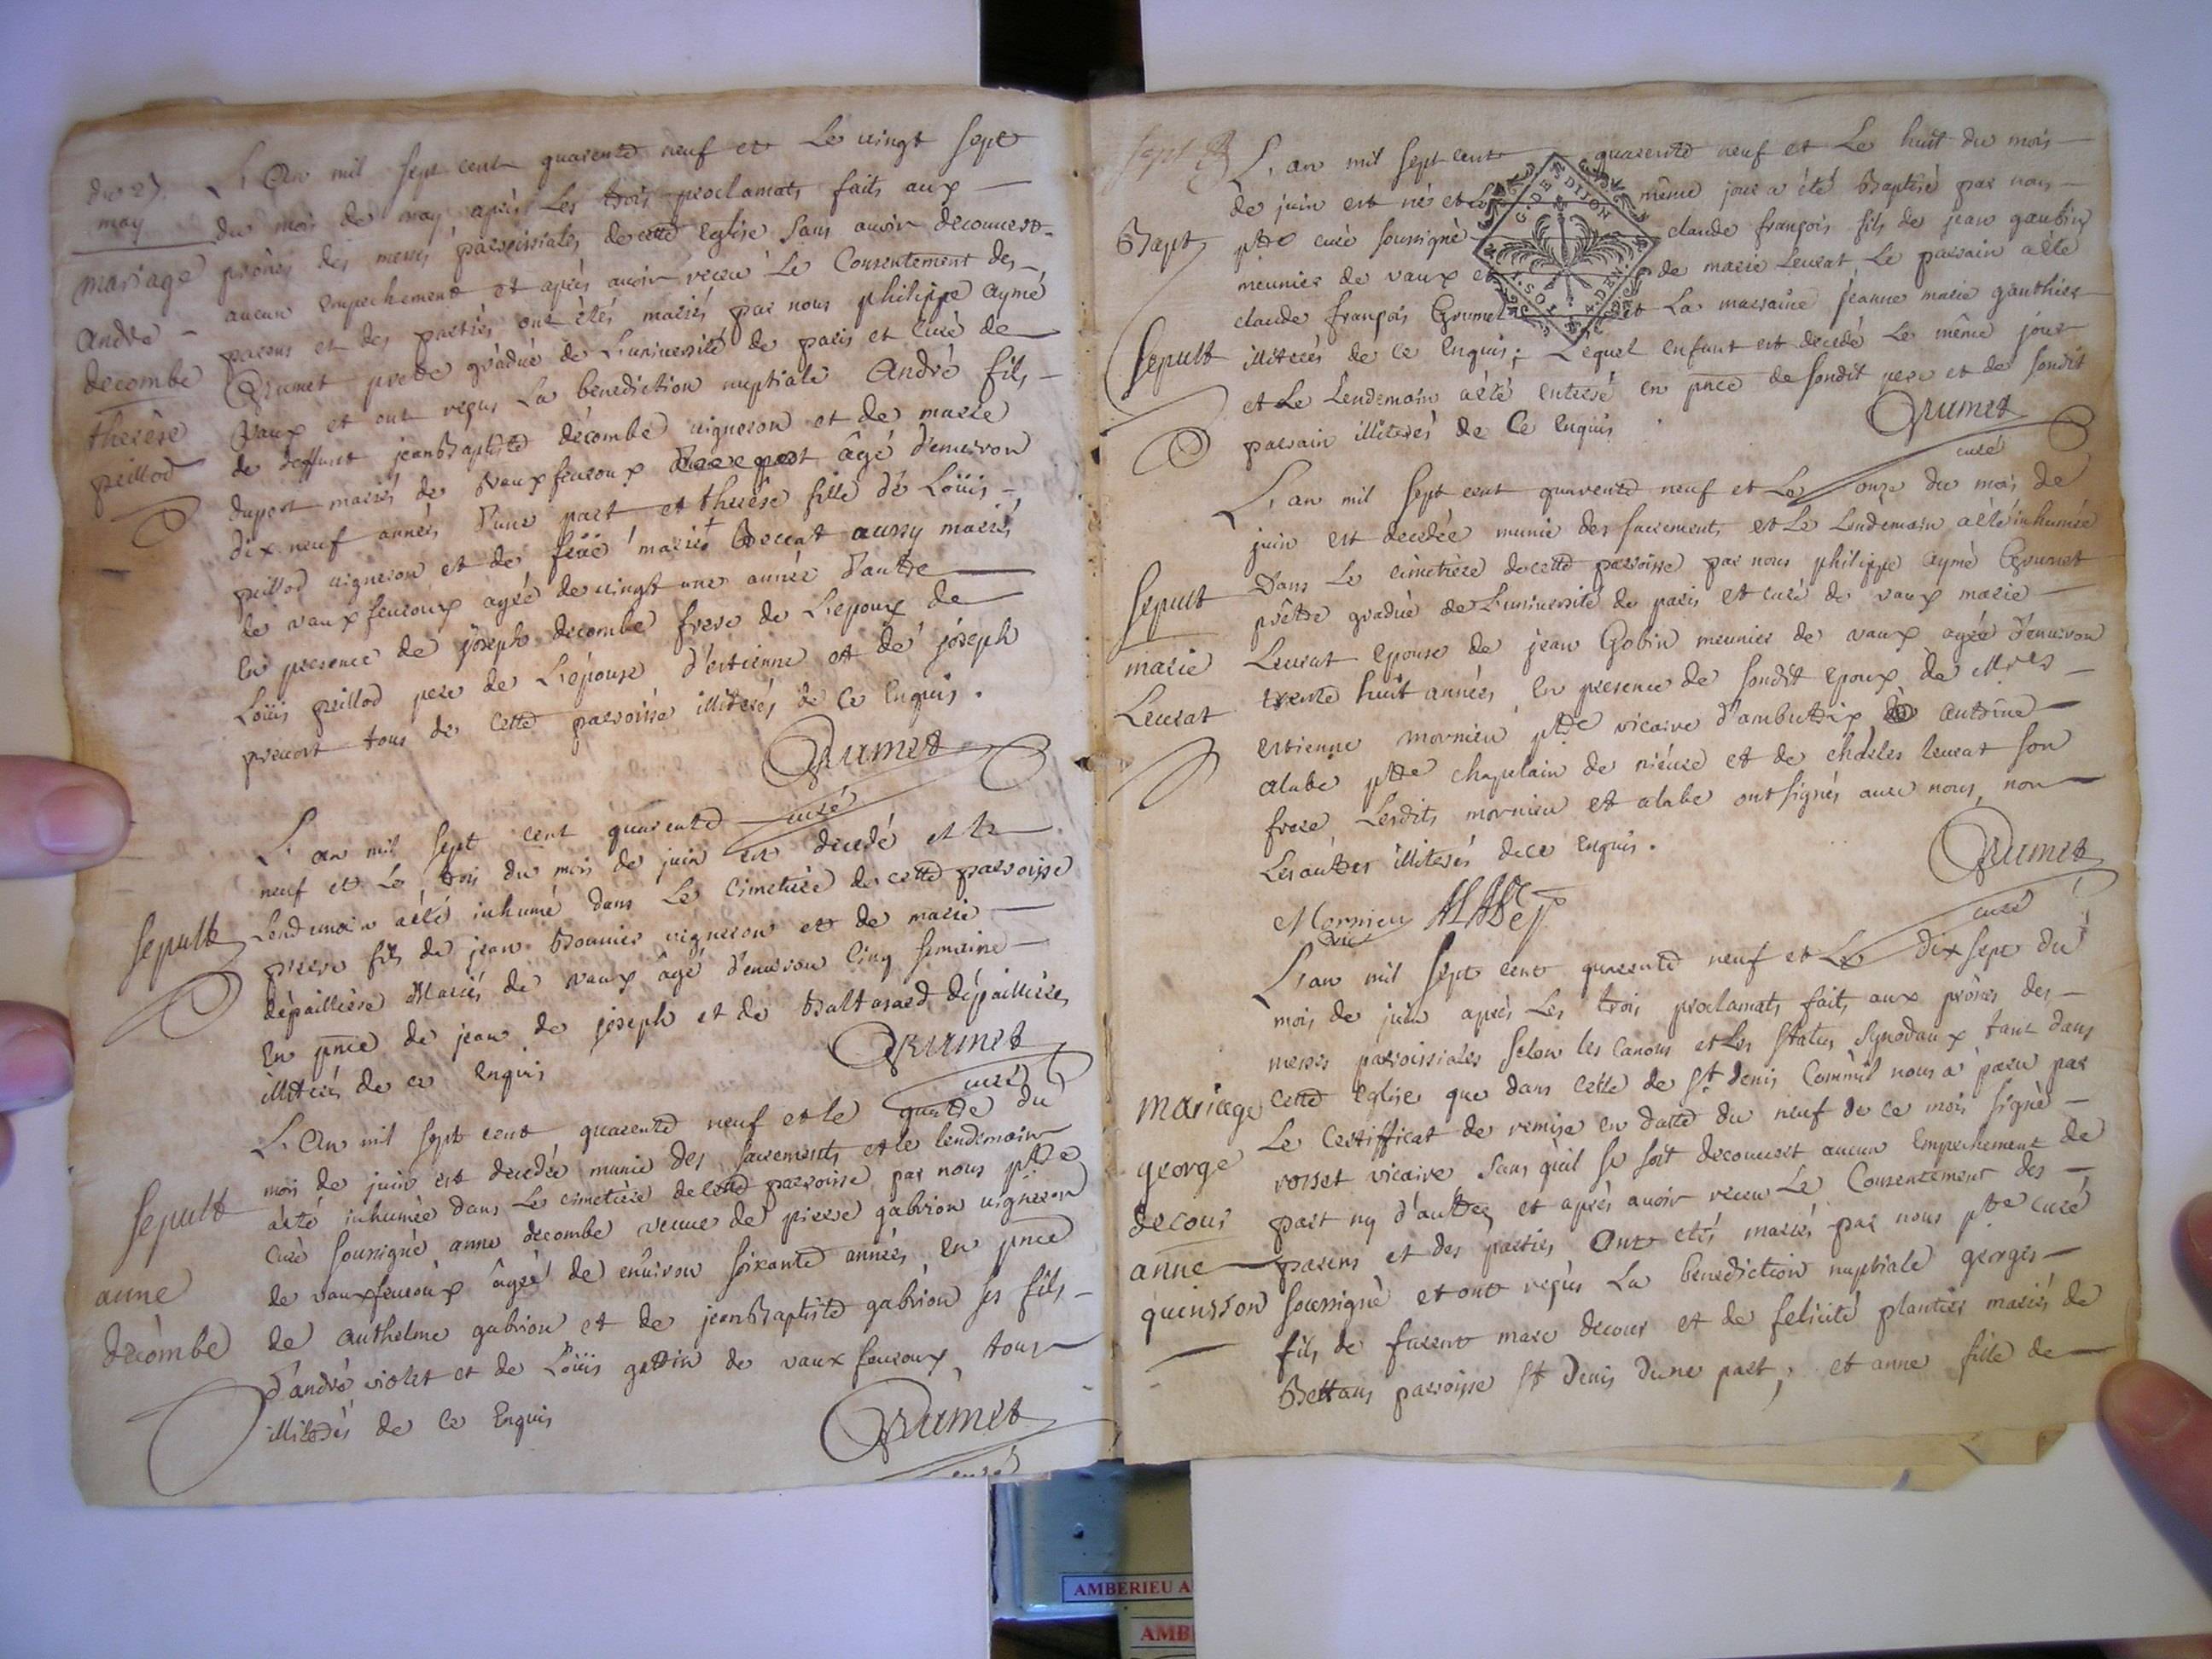 du 27
may
mariage
André
decombe
therèse
peillod
L'An mil sept cent quarente neuf et Le vingt sept
du mois de may après Les trois proclamats faits aux
prônes des messes paroissiales de cette Eglise sans avoir decouvert
aucun Empechement et après avoir receu Le Consentement des
parens et des parties ont étés mariés par nous philippe aymé
Grumet pretre gradué de L'université de paris et curé de
Vaux et ont reçus La benediction nuptiale André fils
de deffunt jean Baptiste décombe vigneron et de marie
duport mariés de Vauxfevroux âgé d'environ
dix neuf années d'une part et therèse fille de Loüis
peillod vigneron et de feüe marie aussy mariés
de vauxfevroux agée de vingt une année d'autre
En presence de joseph decombe frere de L'epoux de
Loüis peillod pere de L'épouse d'estienne et de joseph
prevost tous de cette paroisse illiterés de ce Enquis.
Grumet
curé
Sepult
L'an mil sept cent quarente
neuf et Le trois du mois de juin est decedé et le
Lendemain aété inhumé dans Le Cimetière de cette paroisse
pierre fils de jean Bounier vigneron et de marie
dépaillière Mariés de vaux âgé d'environ Cinq semaine
En pnce de jean de joseph et de Baltasard dépaillières
illiterés de ce Enquis
Grumet
curé
Sepult
anne
decombe
L'An mil sept cent quarente neuf et le quatre du
mois de juin est decedée munie des sacrements et le lendemain
aété inhumée dans Le cimetière de cette paroisse par nous ptre
Curé soussigné anne decombe veuve de pierre gabrion vigneron
de vauxfevroux âgée de environ soixante années En pnce
de anthelme gabrion et de jean Baptiste gabrion ses fils
d'andré violet et de Loüis gottin de vaux fevroux, tous
illiterés de ce Enquis
Grumet
curé
Sept
Bapt
Sepult
L'an mil sept cent quarente neuf et Le huit du mois
de juin est né et Le même jour a été Baptisé par nous
ptre curé soussigné claude françois fils de jean gaubin
meunier de vaux et de marie Leurat Le parrain aété
claude françois Grumet et La marraine jeanne marie gauthier
illiterés de ce Enquis; Lequel enfant est decedé Le même jour
et Le Lendemain aété enterré en pnce de sondit pere et de sondit
parrain illiterés de Ce Enquis
G. DE DIJON
Grumet
curé
Sepult
marie
Leurat
L'an mil sept cent quarente neuf et Le onze du mois de
juin est decedée munie des sacrements et Le Lendemain aété inhumée
Dans Le cimetière de cette paroisse par nous philippe aymé Grumet
prêtre gradué de L'université de paris et curé de vaux marie
Leurat epouse de jean Gobin meunier de vaux agée d'environ
trente huit années En presence de sondit epoux de Mres
estienne mornieu ptre vicaire d'ambutrix de antoine
alabe ptre chapelain de nieure et de charles leurat son
frere Lesdits mornieu et alabe ont signés avec nous, non
Les autres illiterés de ce Enquis.
Grumet
curé
Mornieu
vic
Alabe
mariage
george
decour
anne
quinsson
L'an mil sept cent quarente neuf et Le dix sept du
mois de juin après Les trois proclamats faits aux prônes des
messes paroissiales selon les Canons et Les statuts synodaux tant dans
cette Eglise que dans celle de St denis Comm'il nous a paru par
Le Certifficat de remise en datte du neuf de ce mois signé
rosset vicaire sans qu'il se soit decouvert aucun Empechement de
part ny d'autre et après avoir receu Le Consentement des
parens et des parties Ont etés mariés par nous ptre curé
soussigné et ont reçus La benediction nuptiale georges
fils de furent marc decour et de felicité plantier mariés de
Bettans paroisse St Denis d'une part; et anne fille de
AMBERIEU
AMB